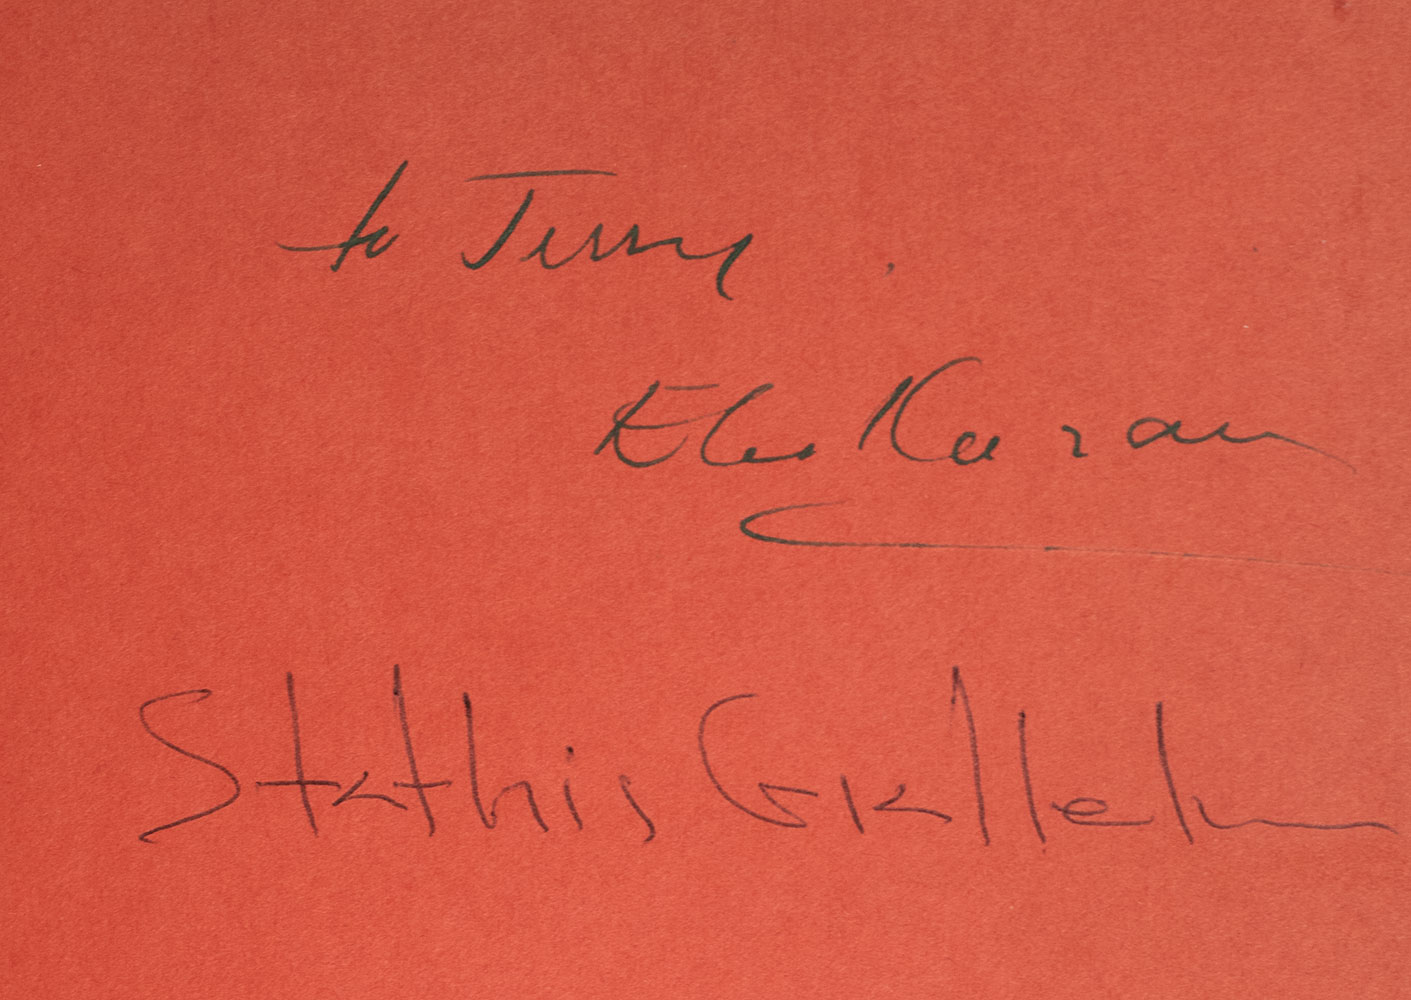 to Jerry
Elia Kazan
Stathis Giallelis